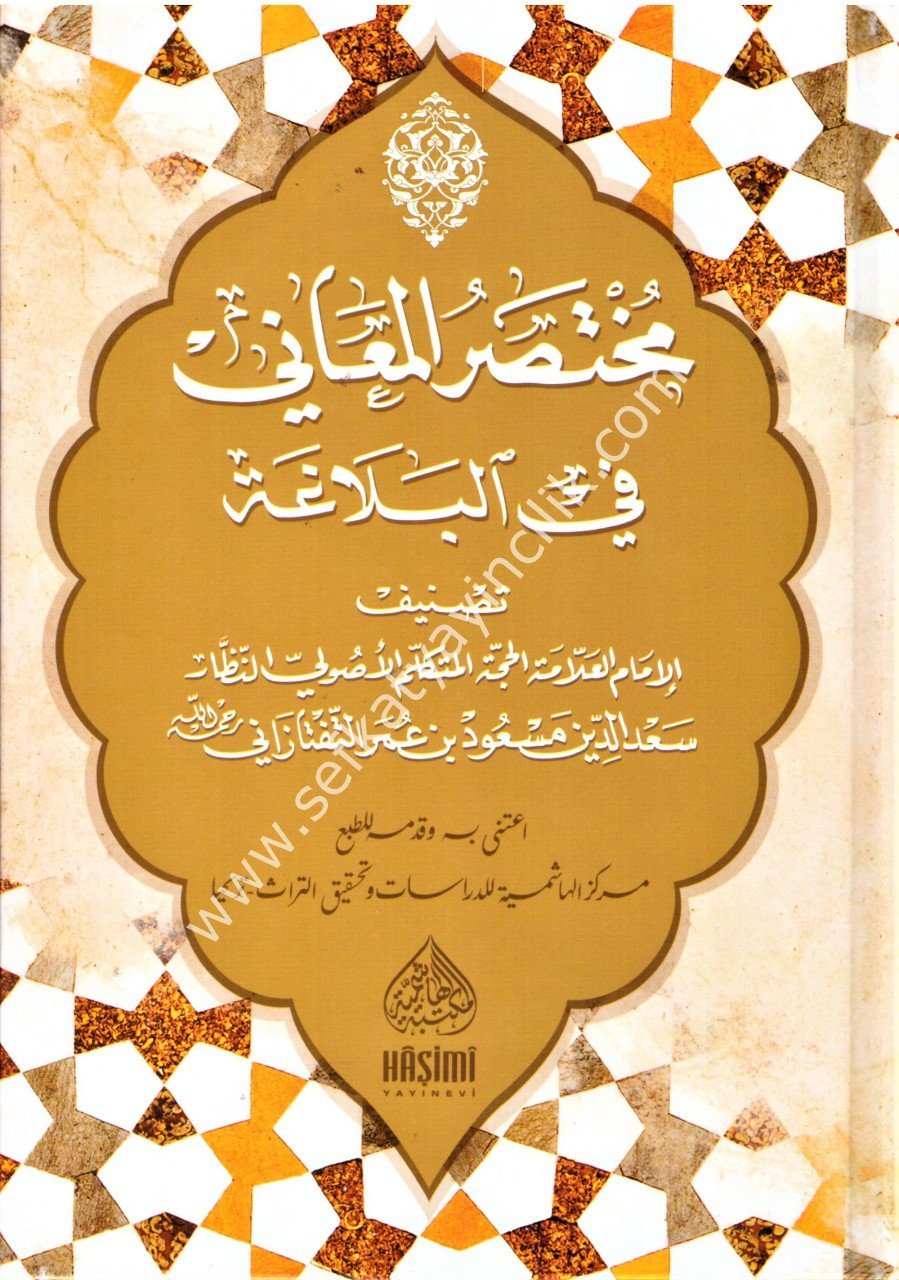 مُخْتَصَرُ المَعَانِي
فِي البَلَاغَة
تَصْنِيف
الإمَام العَلّامَة الحجّة المتكلّم الأُصُوليّ النّظّار
سَعد الدِّين مَسْعُود بن عُمَر التَّفتَازَاني رحمه الله
اعتنى به وقدمه للطبع
مركز الهاشمية للدراسات وتحقيق التراث - تركيا
مكتبة الهاشمية
HÂŞİMÎ
YAYINEVİ
www.seikatyayincilik.com